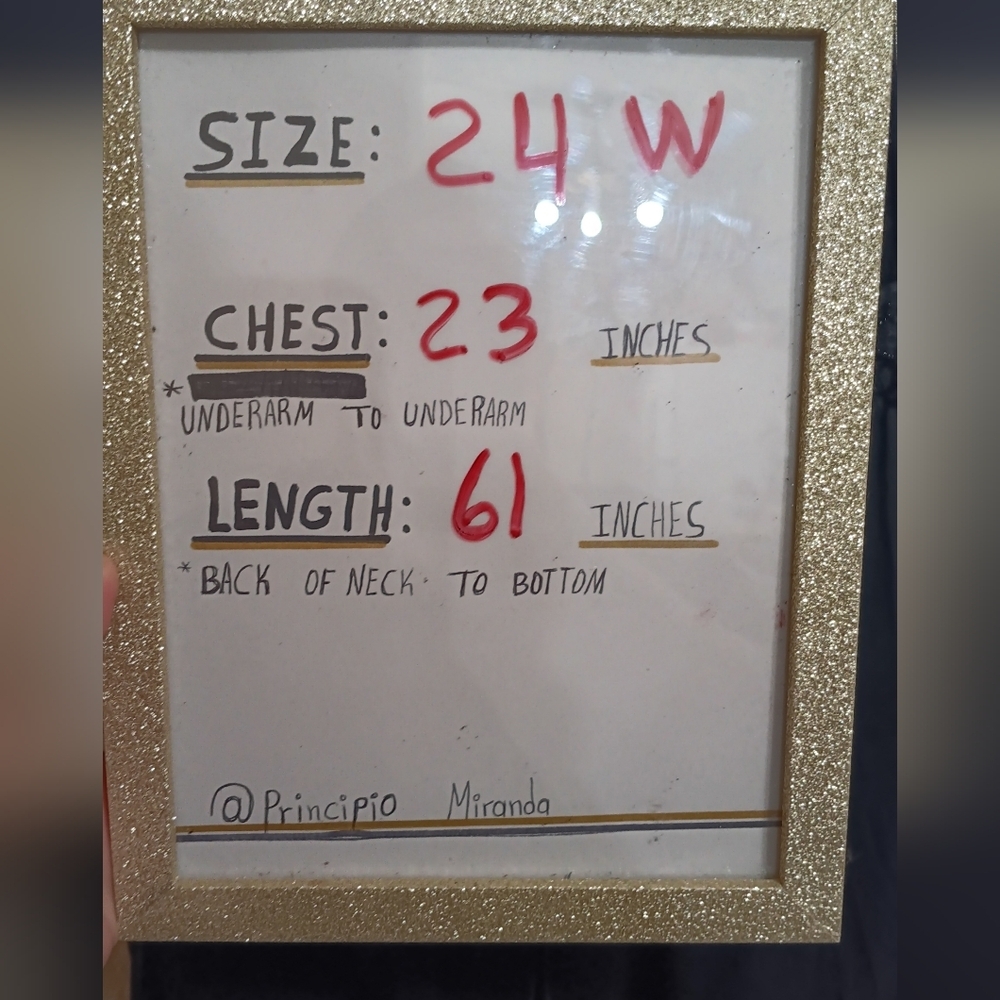 SIZE: 24 W
CHEST: 23 INCHES
*
UNDERARM TO UNDERARM
LENGTH: 61 INCHES
*BACK OF NECK TO BOTTOM
@Principio Miranda